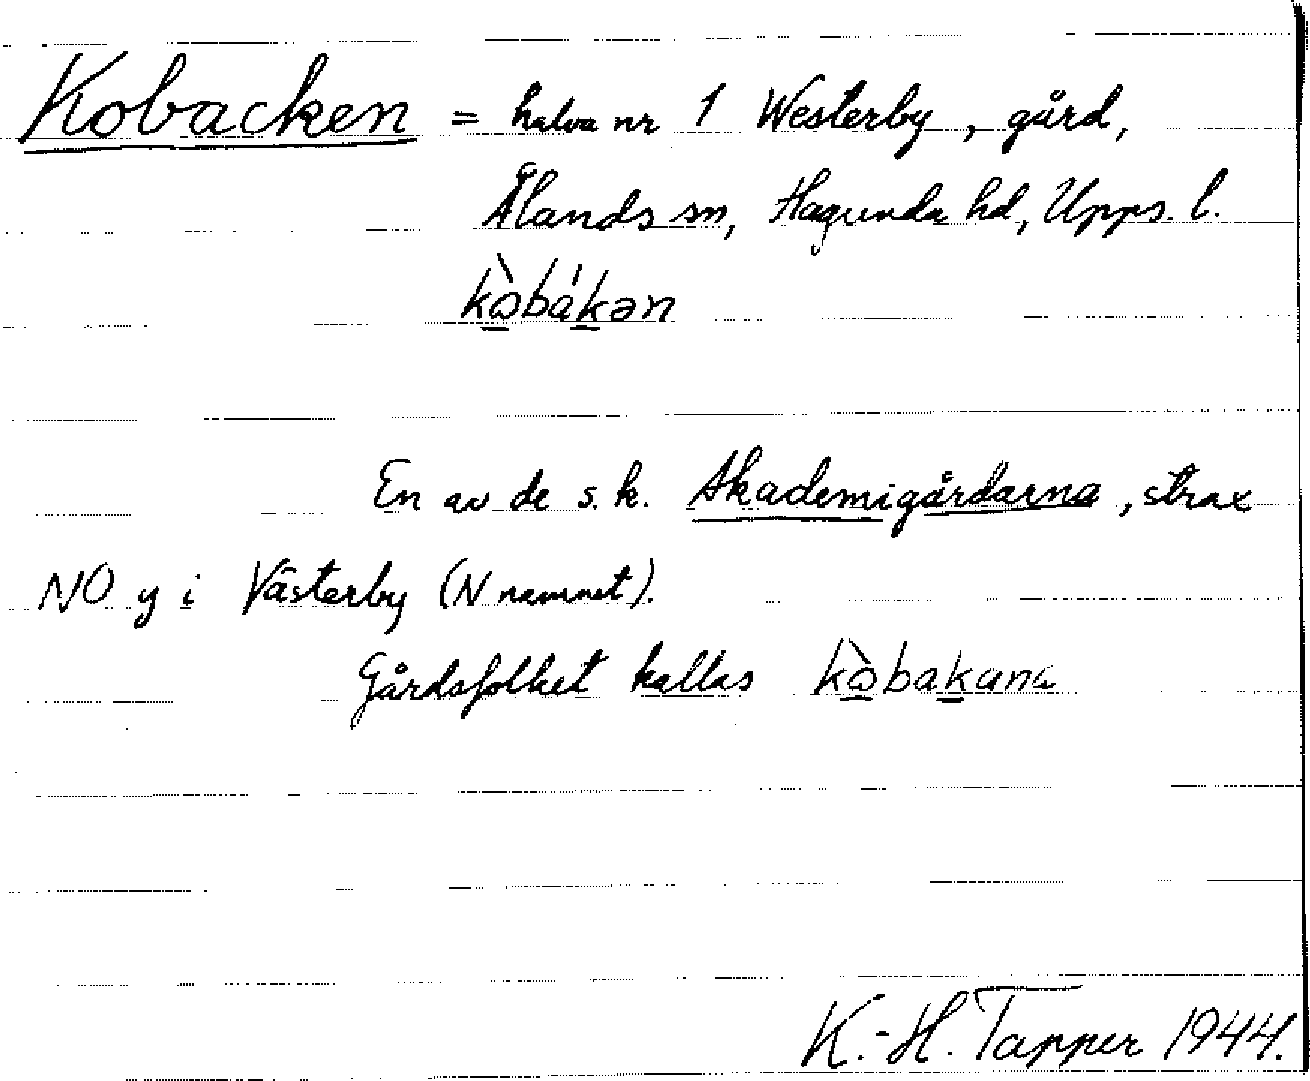 Kobacken = halva nr 1 Westerby, gård,
Ålands sn, Hagunda hd, Upps. l.
kòbákən
En av de s.k. Akademigårdarna, strax
NO y i Västerby (N namnet).
Gårdsfolket kallas kòbakana
K.-H. Tapper 1944.